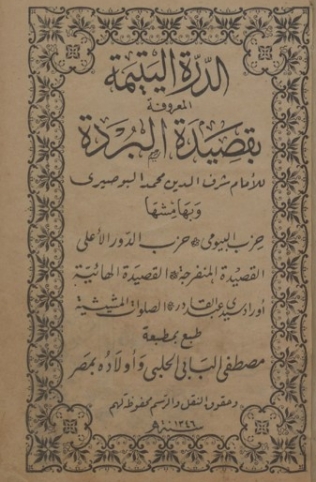 الدرة اليتيمة
المعروفة
بقصيدة البردة
للامام شرف الدين محمد البوصيرى
وبهامشها
حزب البيومى * حزب الدور الأعلى
القصيدة المنفرجة * القصيدة الهائية
أوراد سيدى عبد القادر * الصلوات المشيشية
طبع بمطبعة
مصطفى البابى الحلبى وأولاده بمصر
وحقوق النقل والرسم محفوظة لهم
سنة ١٣٤٦ هـ